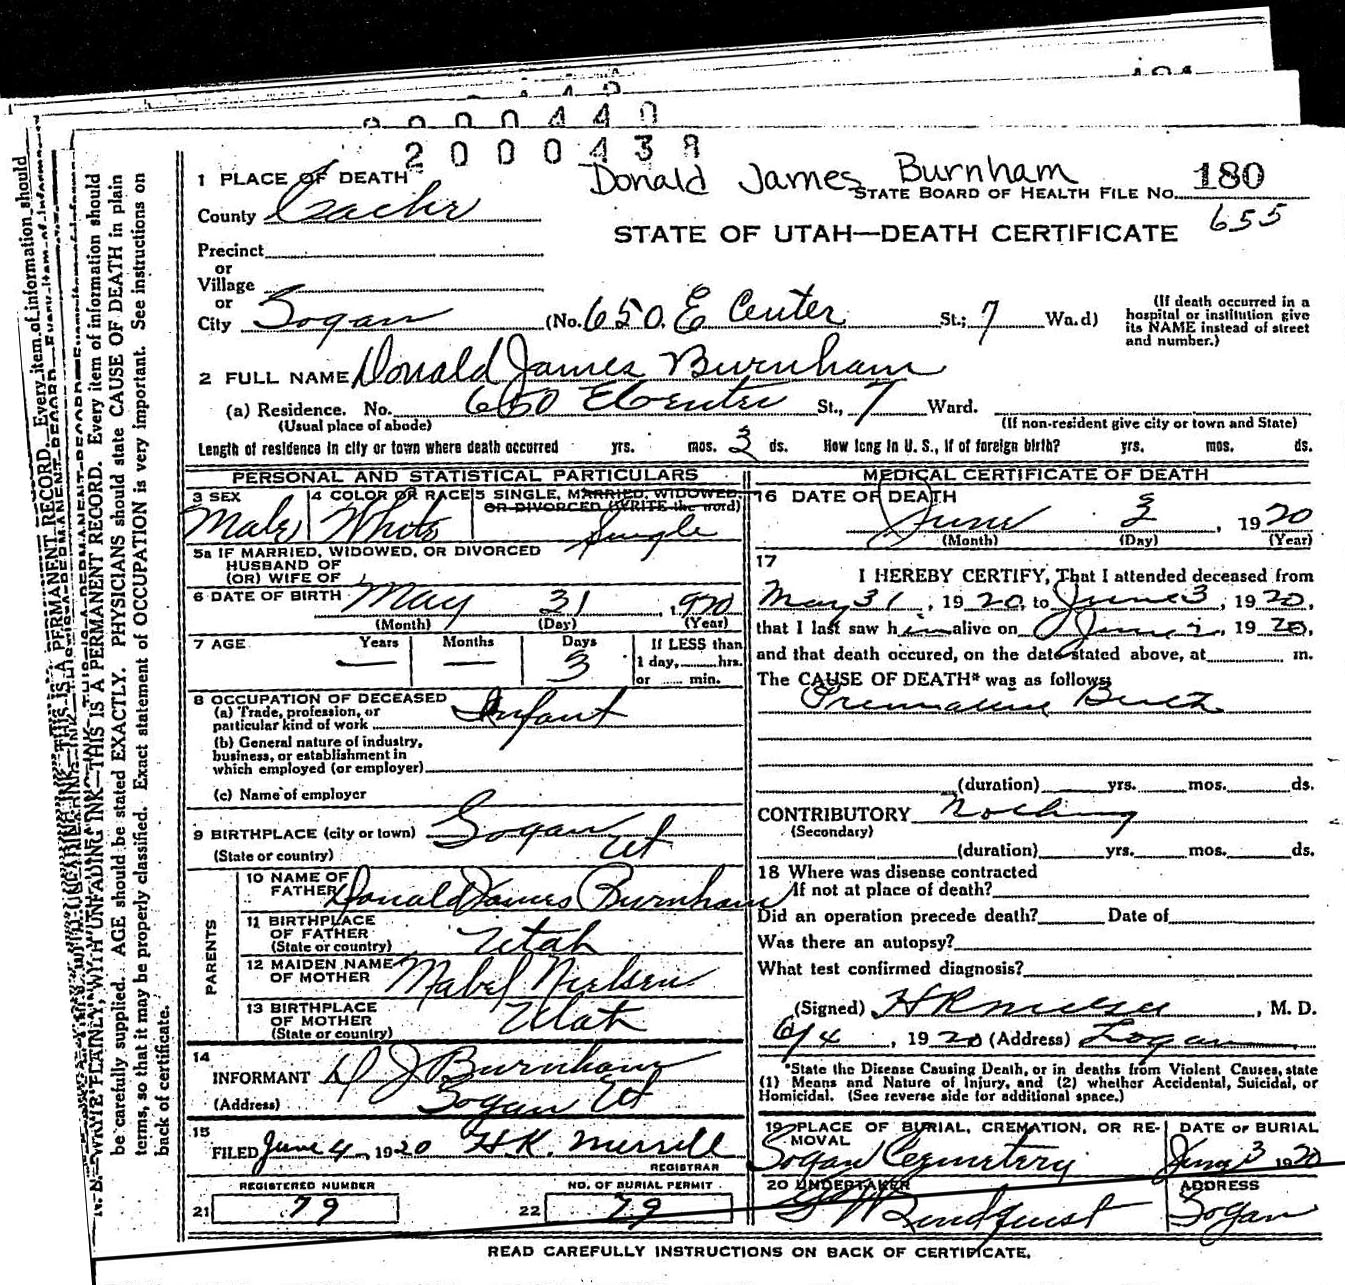 2000440
2000439
Donald James Burnham
1 PLACE OF DEATH
STATE BOARD OF HEALTH FILE No. 180
655
County Cache
STATE OF UTAH—DEATH CERTIFICATE
Precinct
or
Village
or
City Logan (No. 650 E Center St.; 7 Wa.d)
(If death occurred in a hospital or institution give its NAME instead of street and number.)
2 FULL NAME Donald James Burnham
(a) Residence. No. 650 E Center St., 7 Ward.
(Usual place of abode)
(If non-resident give city or town and State)
Length of residence in city or town where death occurred yrs. mos. 3 ds. How long in U. S., if of foreign birth? yrs. mos. ds.
PERSONAL AND STATISTICAL PARTICULARS
3 SEX Male
4 COLOR OR RACE White
5 SINGLE, MARRIED, WIDOWED, OR DIVORCED (WRITE the word) Single
5a IF MARRIED, WIDOWED, OR DIVORCED
HUSBAND OF
(OR) WIFE OF
6 DATE OF BIRTH May 31, 1920
(Month) (Day) (Year)
7 AGE Years — Months — Days 3 If LESS than
1 day, hrs.
or min.
8 OCCUPATION OF DECEASED
(a) Trade, profession, or
particular kind of work Infant
(b) General nature of industry,
business, or establishment in
which employed (or employer)
(c) Name of employer
9 BIRTHPLACE (city or town) Logan
(State or country) Ut
PARENTS
10 NAME OF
FATHER Donald James Burnham
11 BIRTHPLACE
OF FATHER
(State or country) Utah
12 MAIDEN NAME
OF MOTHER Mabel Nielsen
13 BIRTHPLACE
OF MOTHER
(State or country) Utah
14
INFORMANT D J Burnham
(Address) Logan Ut
15
FILED June 4, 1920 H.K. Merrill
REGISTRAR
REGISTERED NUMBER
21 79
NO. OF BURIAL PERMIT
22 79
MEDICAL CERTIFICATE OF DEATH
16 DATE OF DEATH
June 3, 1920
(Month) (Day) (Year)
17
I HEREBY CERTIFY, That I attended deceased from
May 31, 1920, to June 3, 1920,
that I last saw him alive on June, 1920,
and that death occured, on the date stated above, at m.
The CAUSE OF DEATH* was as follows:
Premature Birth
(duration) yrs. mos. ds.
CONTRIBUTORY Nothing
(Secondary)
(duration) yrs. mos. ds.
18 Where was disease contracted
If not at place of death?
Did an operation precede death? Date of
Was there an autopsy?
What test confirmed diagnosis?
(Signed) , M. D.
6/4, 1920 (Address) Logan
*State the Disease Causing Death, or in deaths from Violent Causes, state
(1) Means and Nature of Injury, and (2) whether Accidental, Suicidal, or
Homicidal. (See reverse side for additional space.)
19 PLACE OF BURIAL, CREMATION, OR RE-
MOVAL
Logan Cemetery
DATE OF BURIAL
June 3 1920
20 UNDERTAKER
Lindquist
ADDRESS
Logan
READ CAREFULLY INSTRUCTIONS ON BACK OF CERTIFICATE.
N. B.—WRITE PLAINLY, WITH UNFADING INK—THIS IS A PERMANENT RECORD. Every item of information should
be carefully supplied. AGE should be stated EXACTLY. PHYSICIANS should state CAUSE OF DEATH in plain
terms, so that it may be properly classified. Exact statement of OCCUPATION is very important. See instructions on
back of certificate.